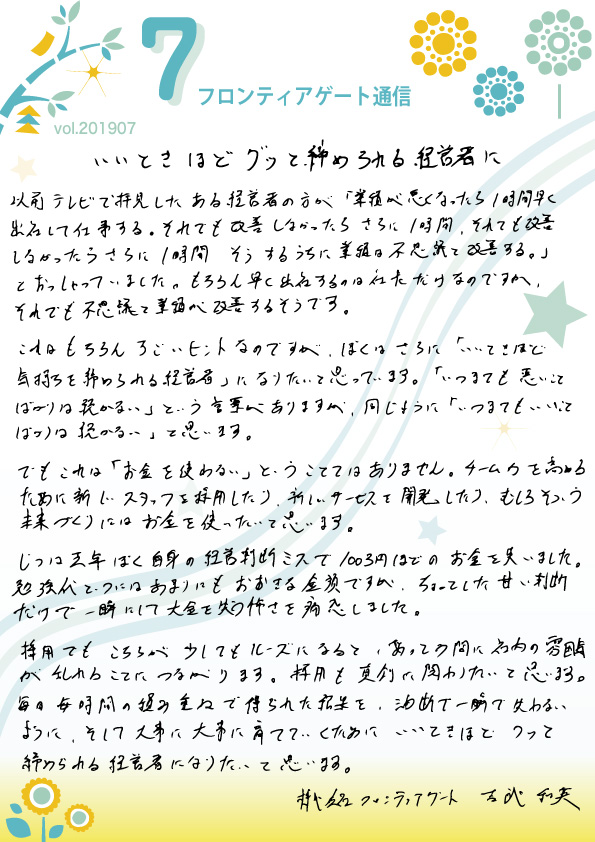 7
フロンティアゲート通信
vol.201907
いいときほどグッと締められる経営者に
以前テレビで拝見したある経営者の方が「業績が悪くなったら1時間早く
出社して仕事する。それでも改善しなかったらさらに1時間、それでも改善
しなかったらさらに1時間 そうするうちに業績は不思議と改善する。」
とおっしゃっていました。もちろん早く出社するのは社長だけなのですが、
それでも不思議と業績が改善するそうです。
これはもちろんすごいヒントなのですが、ぼくはさらに「いいときほど
気持ちを締められる経営者」になりたいと思っています。「いつまでも悪いこと
ばかりは続かない」という言葉がありますが、同じように「いつまでもいいこと
ばかりは続かない」と思います。
でもこれは「お金を使わない」ということではありません。チーム力を高める
ために新しいスタッフを採用したり、新しいサービスを開発したり、むしろそういう
未来づくりにはお金を使いたいと思います。
じつは去年ぼく自身の経営判断ミスで100万円ほどのお金を失いました。
勉強代というにはあまりにもおおきな金額ですが、ちょっとした甘い判断
だけで一瞬にして大金を失う怖さを痛感しました。
採用でもこちらが少しでもルーズになると、あっという間に社内の雰囲気
が乱れることにつながります。採用も真剣に関わりたいと思います。
毎日毎時間の積み重ねで得られた信用を、油断で一瞬で失わない
ように、そして大事に大事に育てていくために いいときほどグッと
締められる経営者になりたいと思います。
株式会社フロンティアゲート 古武